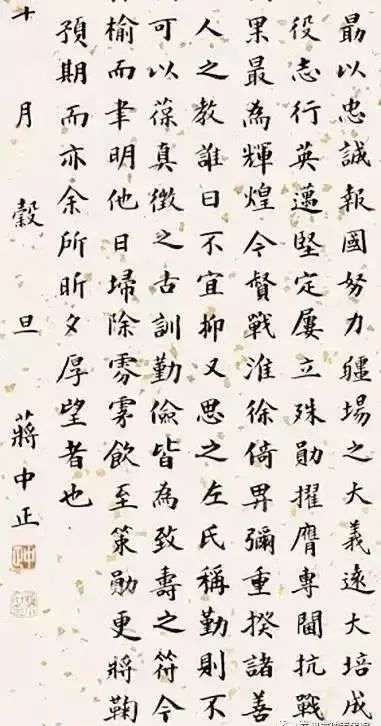 勗以忠誠報國努力疆場之大義遠大培成
役志行英邁堅定屢立殊勛擢膺專閫抗戰
果最為輝煌今督戰淮徐倚畀彌重揆諸善
人之教誰曰不宜抑又思之左氏稱勤則不
可以葆真徵之古訓勤儉皆為致壽之符今
榆而聿明他日埽除雰雺飲至策勛更將鞠
預期而亦余所昕夕厚望者也
十月穀旦
蔣中正